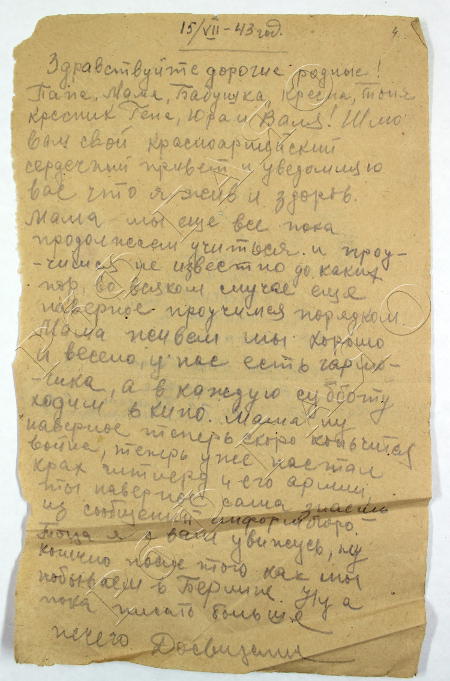 15/VII-43 год.
4.
Здравствуйте дорогие родные!
Папа, Мама, Бабушка, Кресна, Тоня
кресник Гена, Юра и Валя! Шлю
вам свой красноармейский
сердечный привет и уведомляю
вас что я жив и здоров.
Мама мы еще все пока
продолжаем учиться и проу-
-чимся не известно до каких
пор, во всяком случае еще
наверное проучимся порядком.
Мама живем мы хорошо
и весело, у нас есть гармо-
-шка, а в каждую субботу
ходим в кино. Мама ну
наверное теперь скоро кончится
война, теперь уже настал
крах гитлера и его армии
ты наверное сама знаешь
из сообщений информбюро
Тогда я с вами увижусь, ну
конечно после того как мы
побываем в Берлине. Ну а
пока писать больше
нечего Досвидания